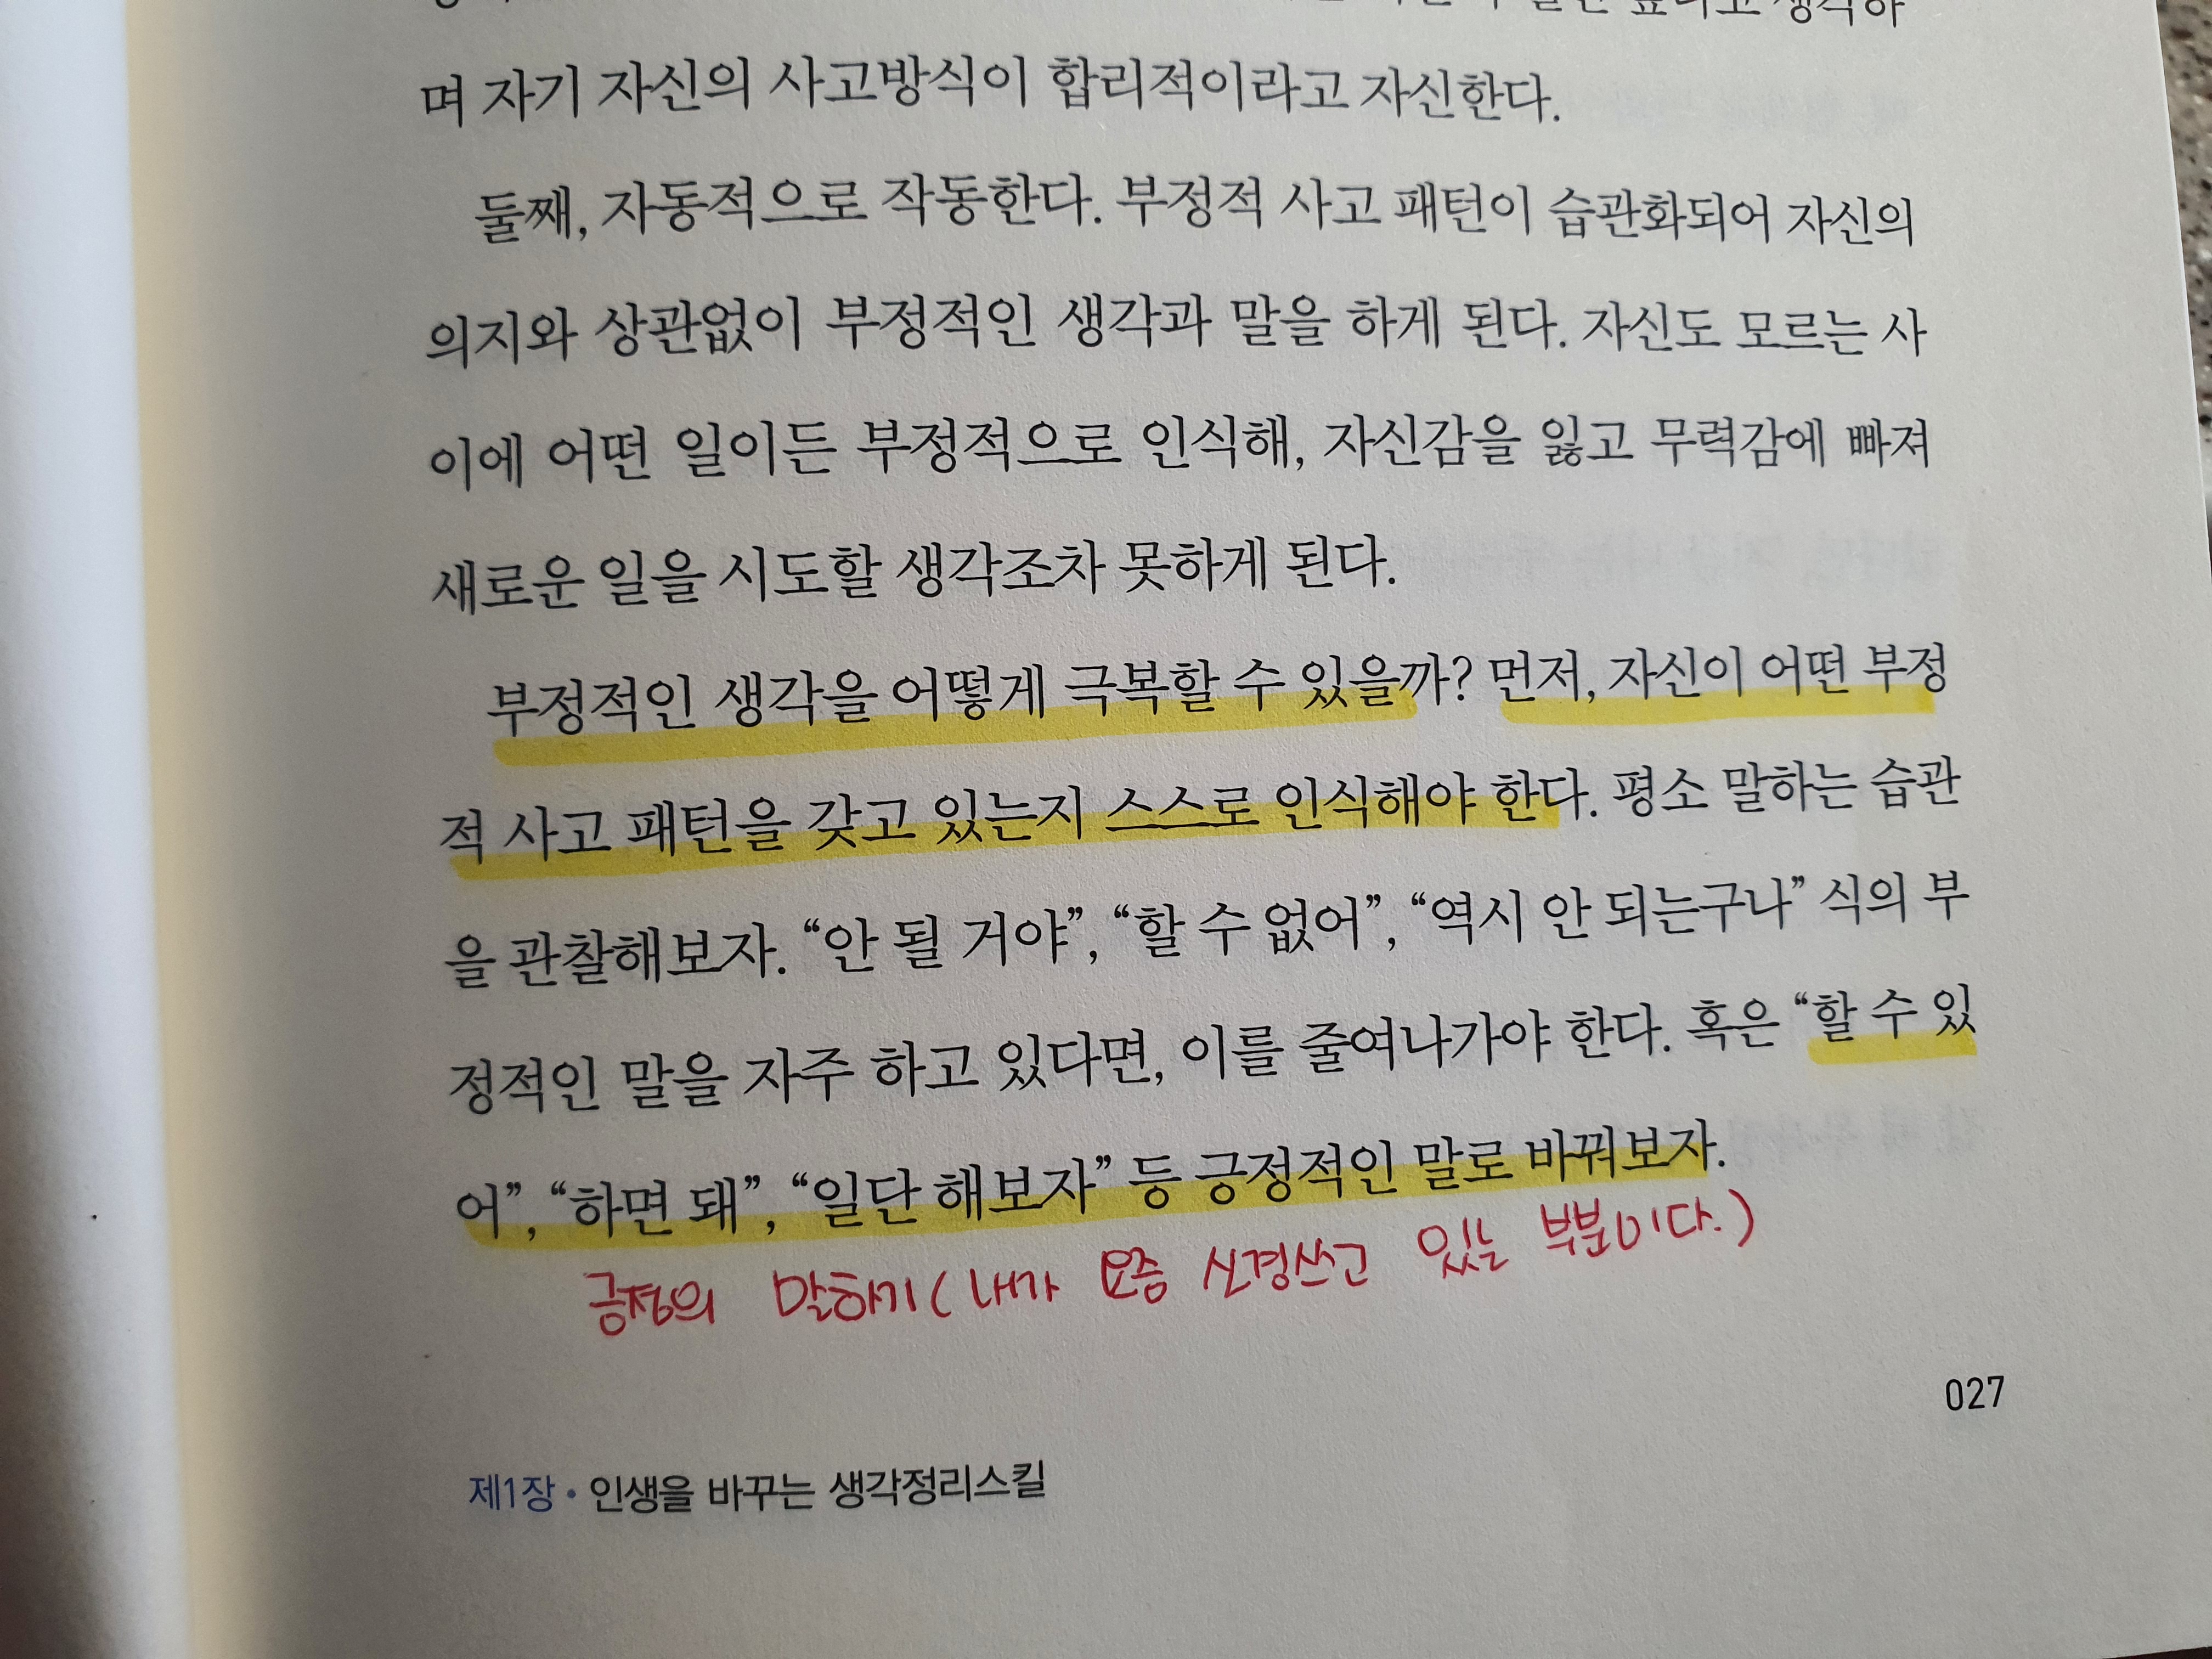 생각하
며 자기 자신의 사고방식이 합리적이라고 자신한다.
둘째, 자동적으로 작동한다. 부정적 사고 패턴이 습관화되어 자신의
의지와 상관없이 부정적인 생각과 말을 하게 된다. 자신도 모르는 사
이에 어떤 일이든 부정적으로 인식해, 자신감을 잃고 무력감에 빠져
새로운 일을 시도할 생각조차 못하게 된다.
부정적인 생각을 어떻게 극복할 수 있을까? 먼저, 자신이 어떤 부정
적 사고 패턴을 갖고 있는지 스스로 인식해야 한다. 평소 말하는 습관
을 관찰해보자. “안 될 거야”, “할 수 없어”, “역시 안 되는구나” 식의 부
정적인 말을 자주 하고 있다면, 이를 줄여나가야 한다. 혹은 “할 수 있
어”, “하면 돼”, “일단 해보자” 등 긍정적인 말로 바꿔보자.
긍정의 말하기 (내가 요즘 신경쓰고 있는 부분이다.)
027
제1장 • 인생을 바꾸는 생각정리스킬